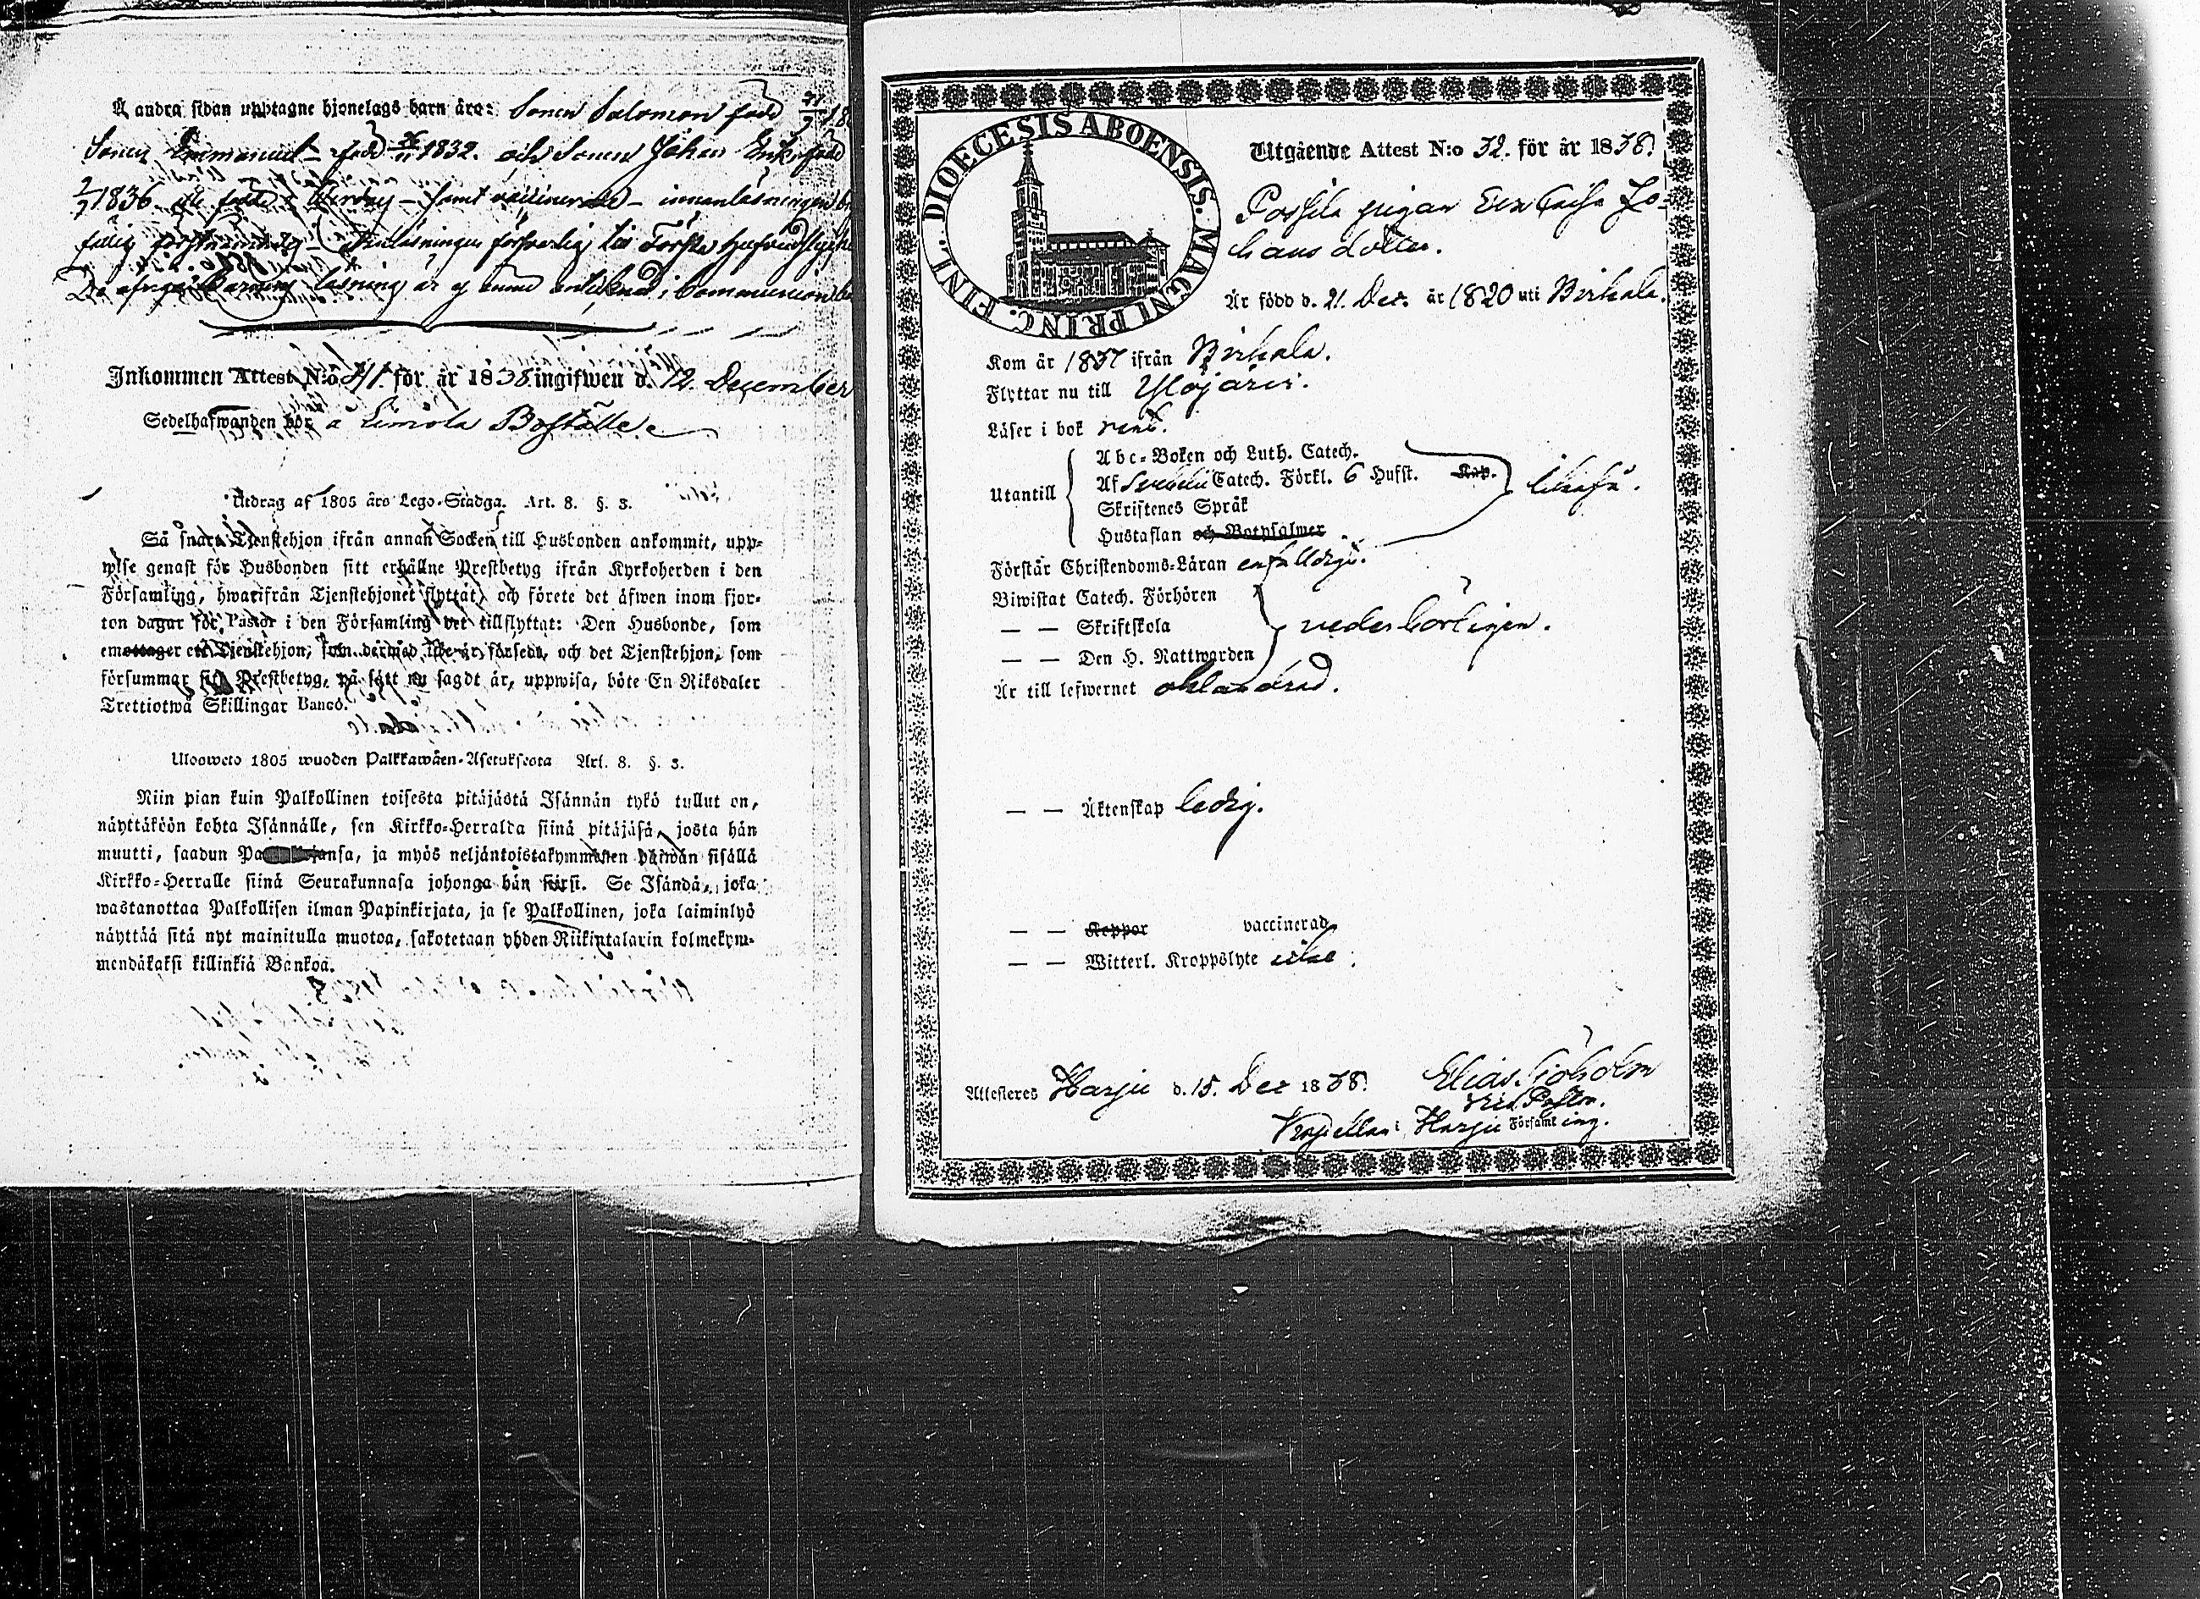 Å andra sidan upptagne hjonelags barn äro: Sonen Salomon född
Sonen Emmanuel född 1832. och Sonen Johan Erik född
1836 alla födde i samt vaccinerade - innanläsningen
Första Hufvudstycke
De öfriga barnens läsning är ej ännu antecknad i Communion
Inkommen Attest N:o 41. för år 1838. ingifwen d. 12. December
Sedelhafwanden bor å Limola Boställe.
Utdrag af 1805 års Lego-Stadga. Art. 8. §. 3.
Så snart Tjenstehjon ifrån annan Socken till Husbonden ankommit, upp-
wise genast för Husbonden sitt erhållne Prestbetyg ifrån Kyrkoherden i den
Församling, hwarifrån Tjenstehjonet flyttat, och förete det äfwen inom fjor-
ton dagar för Pastor i den Församling det tillflyttat: Den Husbonde, som
emottager ett Tjenstehjon, som dermed icke är försedt, och det Tjenstehjon, som
försummar sitt Prestbetyg, på sätt nu sagdt är, uppwisa, böte En Riksdaler
Trettiotwå Skillingar Banco.
Ulosweto 1805 wuoden Palkkawäen-Asetuksesta Art. 8. §. 3.
Niin pian kuin Palkollinen toisesta pitäjästä Isännän tykö tullut on,
näyttäköön kohta Isännälle, sen Kirkko-Herralta siinä pitäjäsä, josta hän
muutti, saadun Pa jansa, ja myös neljäntoistakymmenen päiwän sisällä
Kirkko-Herralle siinä Seurakunnasa johonga hän siirsi. Se Isändä, joka
wastanottaa Palkollisen ilman Papinkirjata, ja se Palkollinen, joka laiminlyö
näyttää sitä nyt mainitulla muotoa, sakotetaan yhden Riikintalarin kolmekym-
mendäkaksi killinkiä Bankoa.
DIOECESIS ABOENSIS. MAGNI PRINC. FINL.
Utgående Attest N:o 32. för år 1838.
pigan Eva Caisa Jo-
hans dotter.
Är född d. 21. Dec. år 1820 uti Birkala.
Kom år 1837 ifrån Birkala.
Flyttar nu till Ylöjärvi.
Läser i bok rent.
Utantill
Abc-Boken och Luth. Catech.
Af Svebelii Catech. Förkl. 6 Hufst. Kap. likaså.
Skriftenes Språk
Hustaflan och Botpsalmer
Förstår Christendoms-Läran enfaldigt.
Biwistat Catech. Förhören
— — Skriftskola vederbörligen.
— — Den H. Nattwarden
Är till lefwernet oklandrad.
— — Äktenskap ledig.
— — Koppor vaccinerad
— — Witterl. Kroppslyte utan.
Attesteres Harju d. 15. Dec 1838. Elias Sjöholm
Vice Pastor.
Kapellan i Harju Församling.